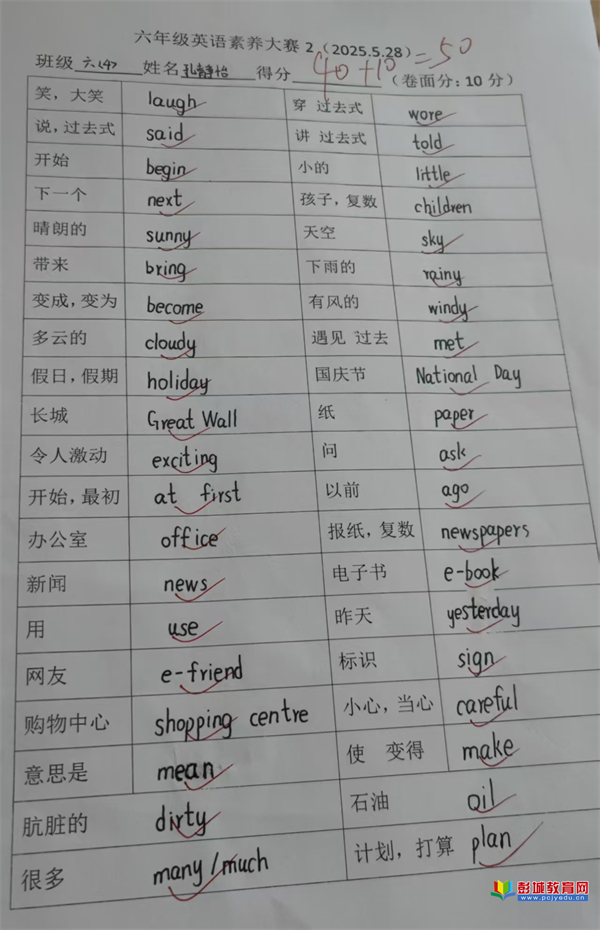 六年级英语素养大赛 2 (2025.5.28)
班级 六(4) 姓名 孔静怡 得分 40+10=50 (卷面分：10 分)
笑, 大笑 laugh 穿 过去式 wore
说, 过去式 said 讲 过去式 told
开始 begin 小的 little
下一个 next 孩子, 复数 children
晴朗的 sunny 天空 sky
带来 bring 下雨的 rainy
变成, 变为 become 有风的 windy
多云的 cloudy 遇见 过去 met
假日, 假期 holiday 国庆节 National Day
长城 Great Wall 纸 paper
令人激动 exciting 问 ask
开始, 最初 at first 以前 ago
办公室 office 报纸, 复数 newspapers
新闻 news 电子书 e-book
用 use 昨天 yesterday
网友 e-friend 标识 sign
购物中心 shopping centre 小心, 当心 careful
意思是 mean 使 变得 make
肮脏的 dirty 石油 oil
很多 many/much 计划, 打算 plan
彭城教育网
www.pcjyedu.cn